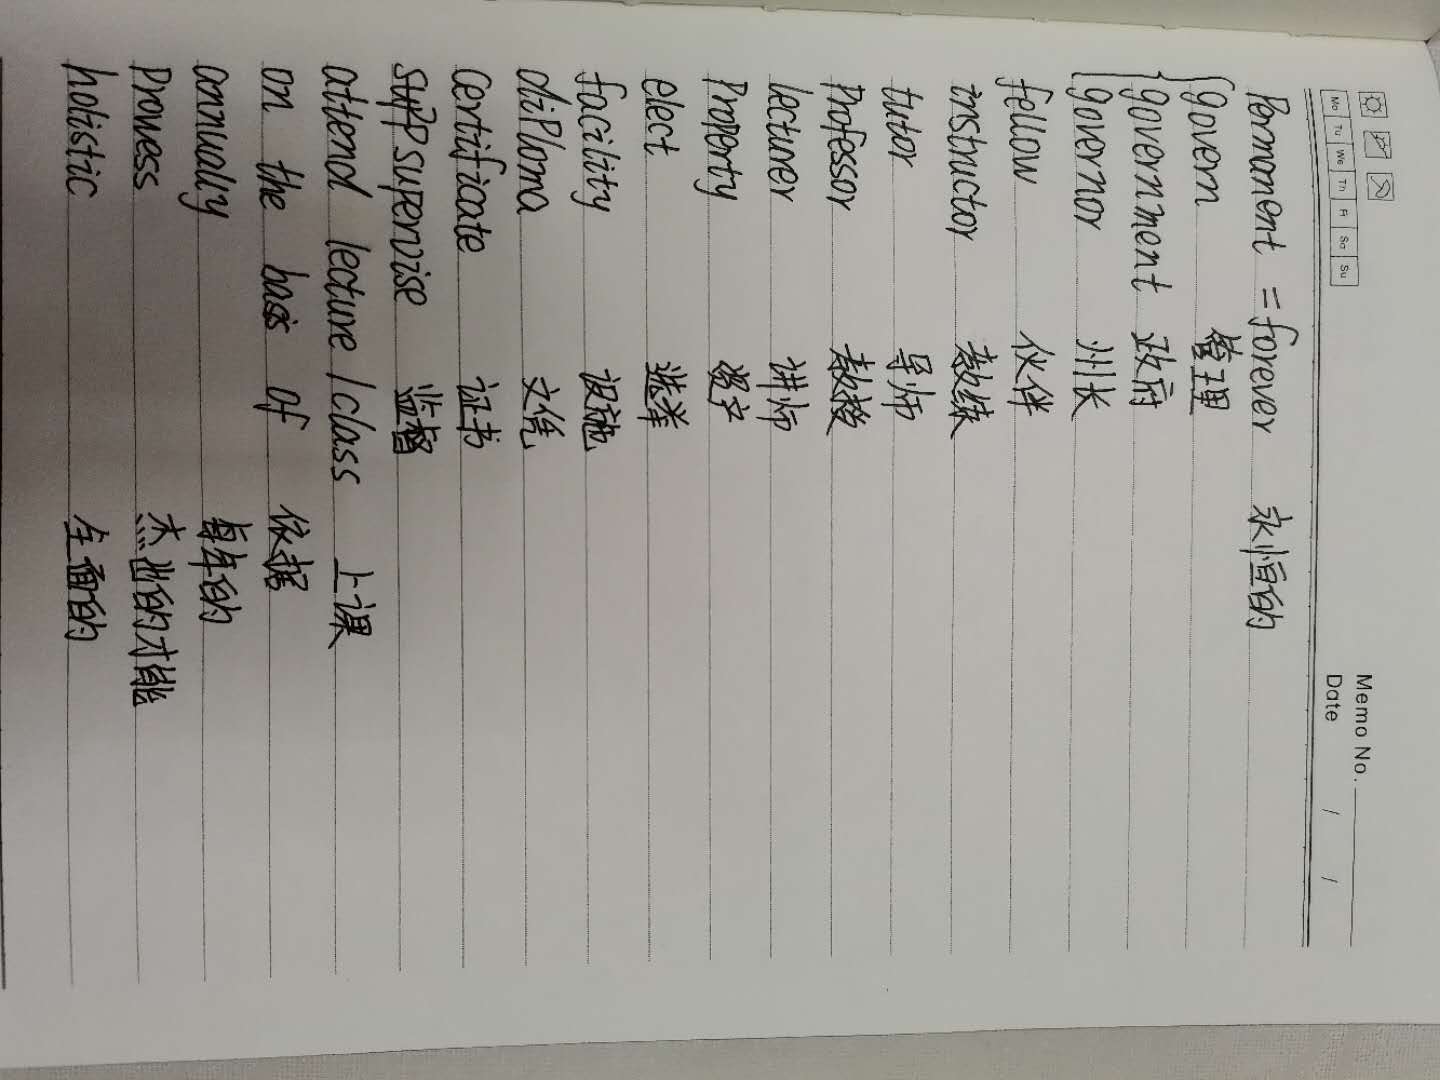 Memo No.
Mo Tu We Th Fr Sa Su
Date / /
Permanent = forever 永恒的
govern 管理
government 政府
governor 州长
fellow 伙伴
instructor 教练
tutor 导师
Professor 教授
lecturer 讲师
Property 资产
elect 选举
facility 设施
diploma 文凭
Certificate 证书
supervise 监督
attend lecture / class 上课
on the basis of 依据
annually 每年的
Prowess 杰出的才能
holistic 全面的